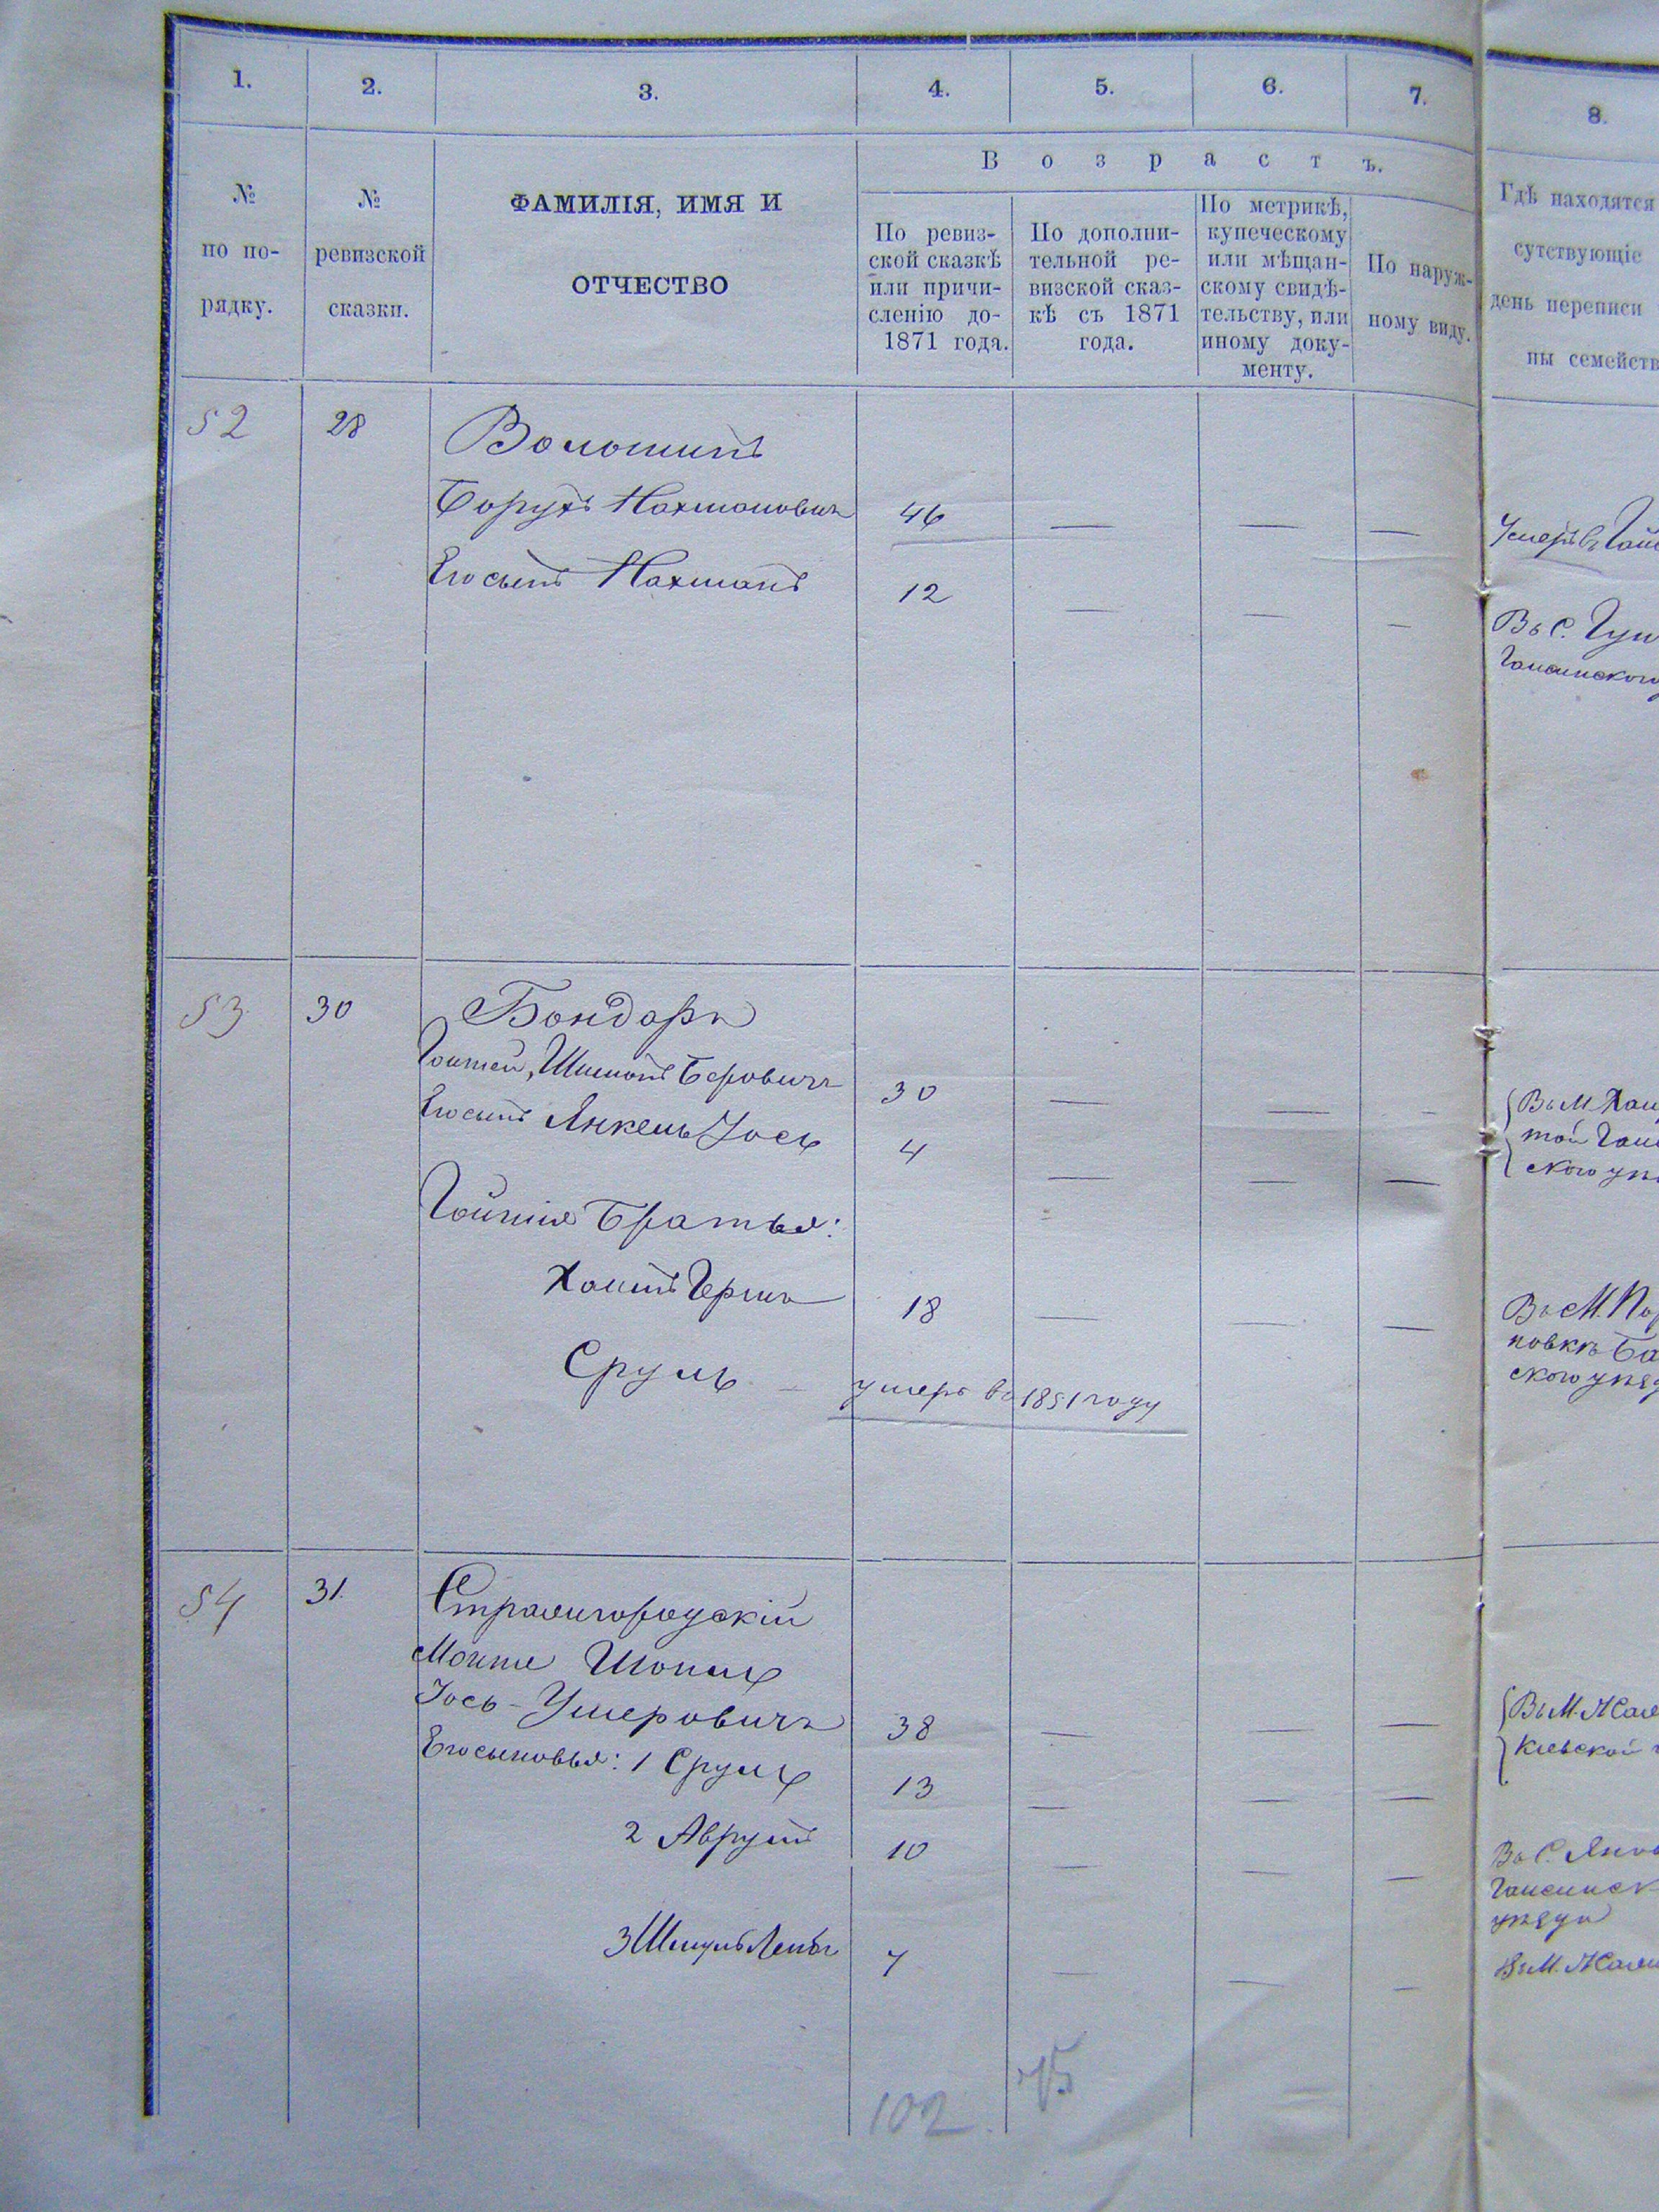 1. 2. 3. 4. 5. 6. 7. 8.
В о з р а с т ъ.
№ по по-рядку.
№ ревизской сказки.
ФАМИЛІЯ, ИМЯ И
ОТЧЕСТВО
По ревиз-
ской сказкѣ
или причи-
сленію до-
1871 года.
По дополни-
тельной ре-
визской сказ-
кѣ съ 1871
года.
По метрикѣ,
купеческому
или мѣщан-
скому свидѣ-
тельству, или
иному доку-
менту.
По наруж-
ному виду.
Гдѣ находятся
сутствующіе
день переписи
ны семейств
52 28 Волошинъ
Борухъ Нахмановичъ 46 — — — Умеръ въ Гай
Его сынъ Нахманъ 12 — — — Въ С.
Гайсинского
53 30 Бондарь
Шимонъ Беровичъ 30 — — — Въ М. Хаш
той Гайс
Его сынъ Янкель Іось 4 — — — ского уѣ
Братья:
Хаимъ Герш 18 — — — Въ М.
повкѣ Ба
Сруль — умеръ въ 1851 году
ского уѣзд
54 31.
Мошко
Іось-Ушеровичъ 38 — — — Въ М. Жаш
Его сыновья: 1 Сруль 13 — — — Кіевской
2 Аврумъ 10 — — — Въ С.
Гайсинск
уѣзда
3 Шмуль Лейба 7 — — — Въ М. Жаш
102 75